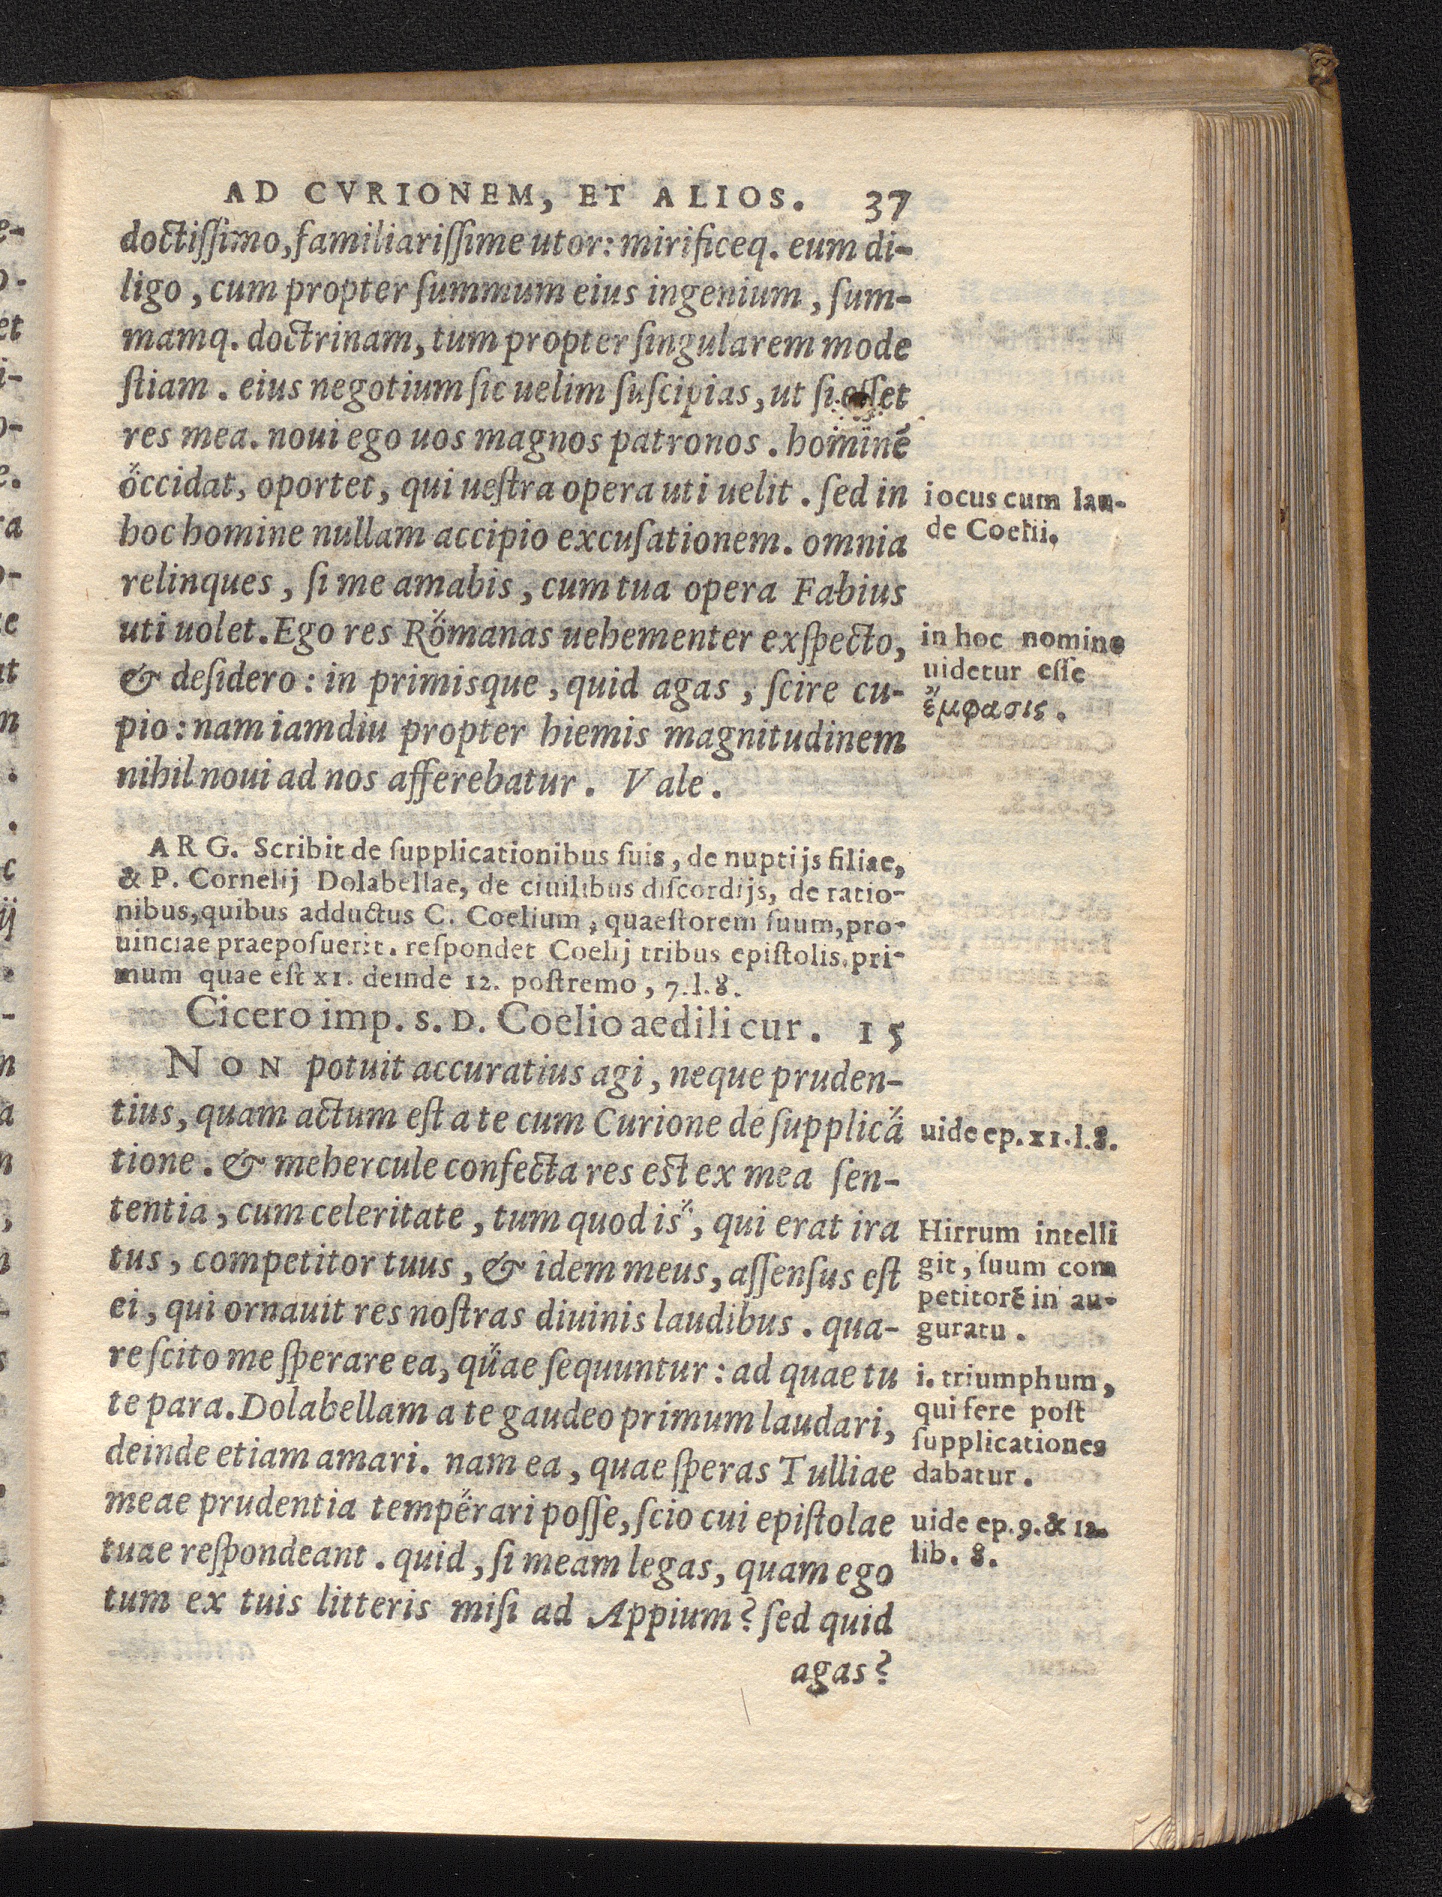 AD CVRIONEM, ET ALIOS. 37
doctiſſimo, familiariſſime utor: mirificeq. eum di-
ligo, cum propter ſummum eius ingenium, ſum-
mamq. doctrinam, tum propter ſingularem mode
ſtiam. eius negotium ſic uelim ſuſcipias, ut ſi eſſet
res mea. noui ego uos magnos patronos. hominẽ
occidat, oportet, qui ueſtra opera uti uelit. ſed in
hoc homine nullam accipio excuſationem. omnia
relinques, ſi me amabis, cum tua opera Fabius
uti uolet. Ego res Romanas uehementer exſpecto,
& deſidero: in primisque, quid agas, ſcire cu-
pio: nam iamdiu propter hiemis magnitudinem
nihil noui ad nos afferebatur. Vale.
iocus cum lau-
de Coelii.
in hoc nomine
uidetur eſſe
ἔμφασις.
ARG. Scribit de ſupplicationibus ſuis, de nuptijs filiae,
& P. Cornelij Dolabellae, de ciuilibus diſcordijs, de ratio-
nibus, quibus adductus C. Coelium, quaeſtorem ſuum, pro-
uinciae praepoſuerit. reſpondet Coelij tribus epiſtolis. pri-
mum quae eſt XI. deinde 12. poſtremo, 7. l. 8.
Cicero imp. S. D. Coelio aedili cur. 15
NON potuit accuratius agi, neque pruden-
tius, quam actum eſt a te cum Curione de ſupplica
tione. & mehercule confecta res eſt ex mea ſen-
tentia, cum celeritate, tum quod is, qui erat ira
tus, competitor tuus, & idem meus, aſſenſus eſt
ei, qui ornauit res noſtras diuinis laudibus. qua-
re ſcito me ſperare ea, quae ſequuntur: ad quae tu
te para. Dolabellam a te gaudeo primum laudari,
deinde etiam amari. nam ea, quae ſperas Tulliae
meae prudentia temperari poſſe, ſcio cui epiſtolae
tuae reſpondeant. quid, ſi meam legas, quam ego
tum ex tuis litteris miſi ad Appium? ſed quid
agas?
uide ep. XI. l. 8.
Hirrum intelli
git, ſuum com
petitorẽ in au-
guratu.
i. triumphum,
qui fere poſt
ſupplicationes
dabatur.
uide ep. 9. & 12.
lib. 8.